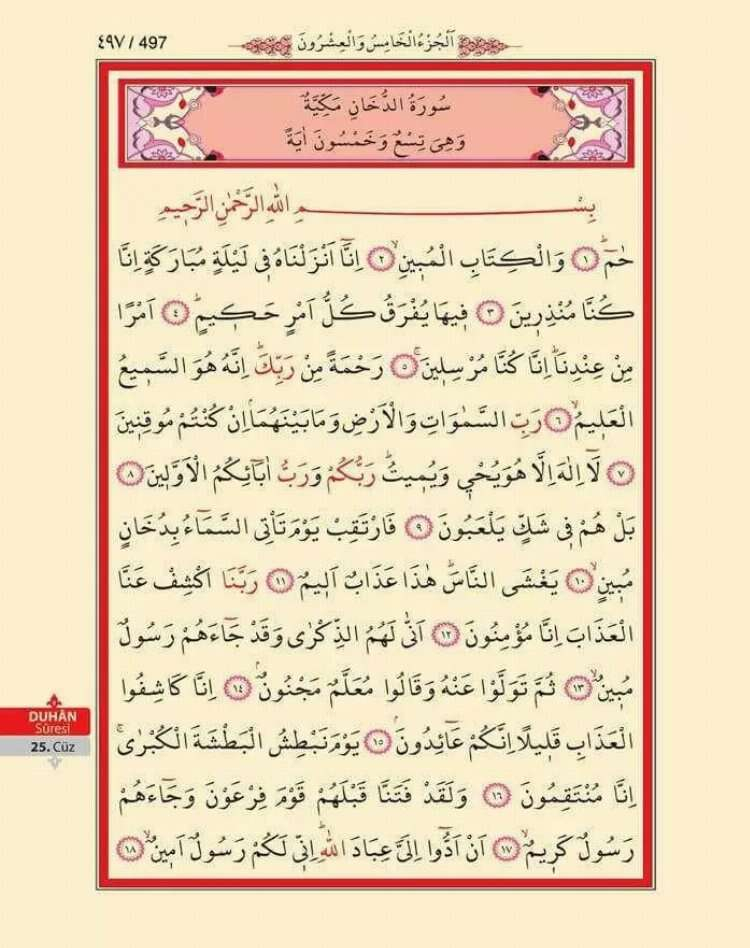 ٤٩٧ / 497 اَلْجُزْءُ الْخَامِسُ وَالْعِشْرُونَ
سُورَةُ الدُّخَانِ مَكِّيَّةٌ
وَهِيَ تِسْعٌ وَخَمْسُونَ اٰيَةً
بِسْمِ اللّٰهِ الرَّحْمٰنِ الرَّحِيمِ
حٰمٓۜ ﴿١﴾ وَالْكِتَابِ الْمُبِينِۙ ﴿٢﴾ اِنَّٓا اَنْزَلْنَاهُ فِي لَيْلَةٍ مُبَارَكَةٍ اِنَّا
كُنَّا مُنْذِرِينَ ﴿٣﴾ فِيهَا يُفْرَقُ كُلُّ اَمْرٍ حَكِيمٍۜ ﴿٤﴾ اَمْرًا
مِنْ عِنْدِنَاۜ اِنَّا كُنَّا مُرْسِلِينَۚ ﴿٥﴾ رَحْمَةً مِنْ رَبِّكَۜ اِنَّهُ هُوَ السَّمِيعُ
الْعَلِيمُۙ ﴿٦﴾ رَبِّ السَّمٰوَاتِ وَالْاَرْضِ وَمَا بَيْنَهُمَاۢ اِنْ كُنْتُمْ مُوقِنِينَ
﴿٧﴾ لَٓا اِلٰهَ اِلَّا هُوَ يُحْيِي وَيُمِيتُۜ رَبُّكُمْ وَرَبُّ اٰبَٓائِكُمُ الْاَوَّلِينَ ﴿٨﴾
بَلْ هُمْ فِي شَكٍّ يَلْعَبُونَ ﴿٩﴾ فَارْتَقِبْ يَوْمَ تَأْتِي السَّمَٓاءُ بِدُخَانٍ
مُبِينٍۙ ﴿١٠﴾ يَغْشَى النَّاسَۜ هٰذَا عَذَابٌ اَلِيمٌ ﴿١١﴾ رَبَّنَا اكْشِفْ عَنَّا
الْعَذَابَ اِنَّا مُؤْمِنُونَ ﴿١٢﴾ اَنّٰى لَهُمُ الذِّكْرٰى وَقَدْ جَٓاءَهُمْ رَسُولٌ
مُبِينٌۙ ﴿١٣﴾ ثُمَّ تَوَلَّوْا عَنْهُ وَقَالُوا مُعَلَّمٌ مَجْنُونٌۢ ﴿١٤﴾ اِنَّا كَاشِفُوا
الْعَذَابِ قَلِيلًا اِنَّكُمْ عَٓائِدُونَۢ ﴿١٥﴾ يَوْمَ نَبْطِشُ الْبَطْشَةَ الْكُبْرٰىۚ
اِنَّا مُنْتَقِمُونَ ﴿١٦﴾ وَلَقَدْ فَتَنَّا قَبْلَهُمْ قَوْمَ فِرْعَوْنَ وَجَٓاءَهُمْ
رَسُولٌ كَرِيمٌۙ ﴿١٧﴾ اَنْ اَدُّٓوا اِلَيَّ عِبَادَ اللّٰهِۜ اِنِّي لَكُمْ رَسُولٌ اَمِينٌۙ ﴿١٨﴾
DUHÂN
Sûresi
25. Cüz